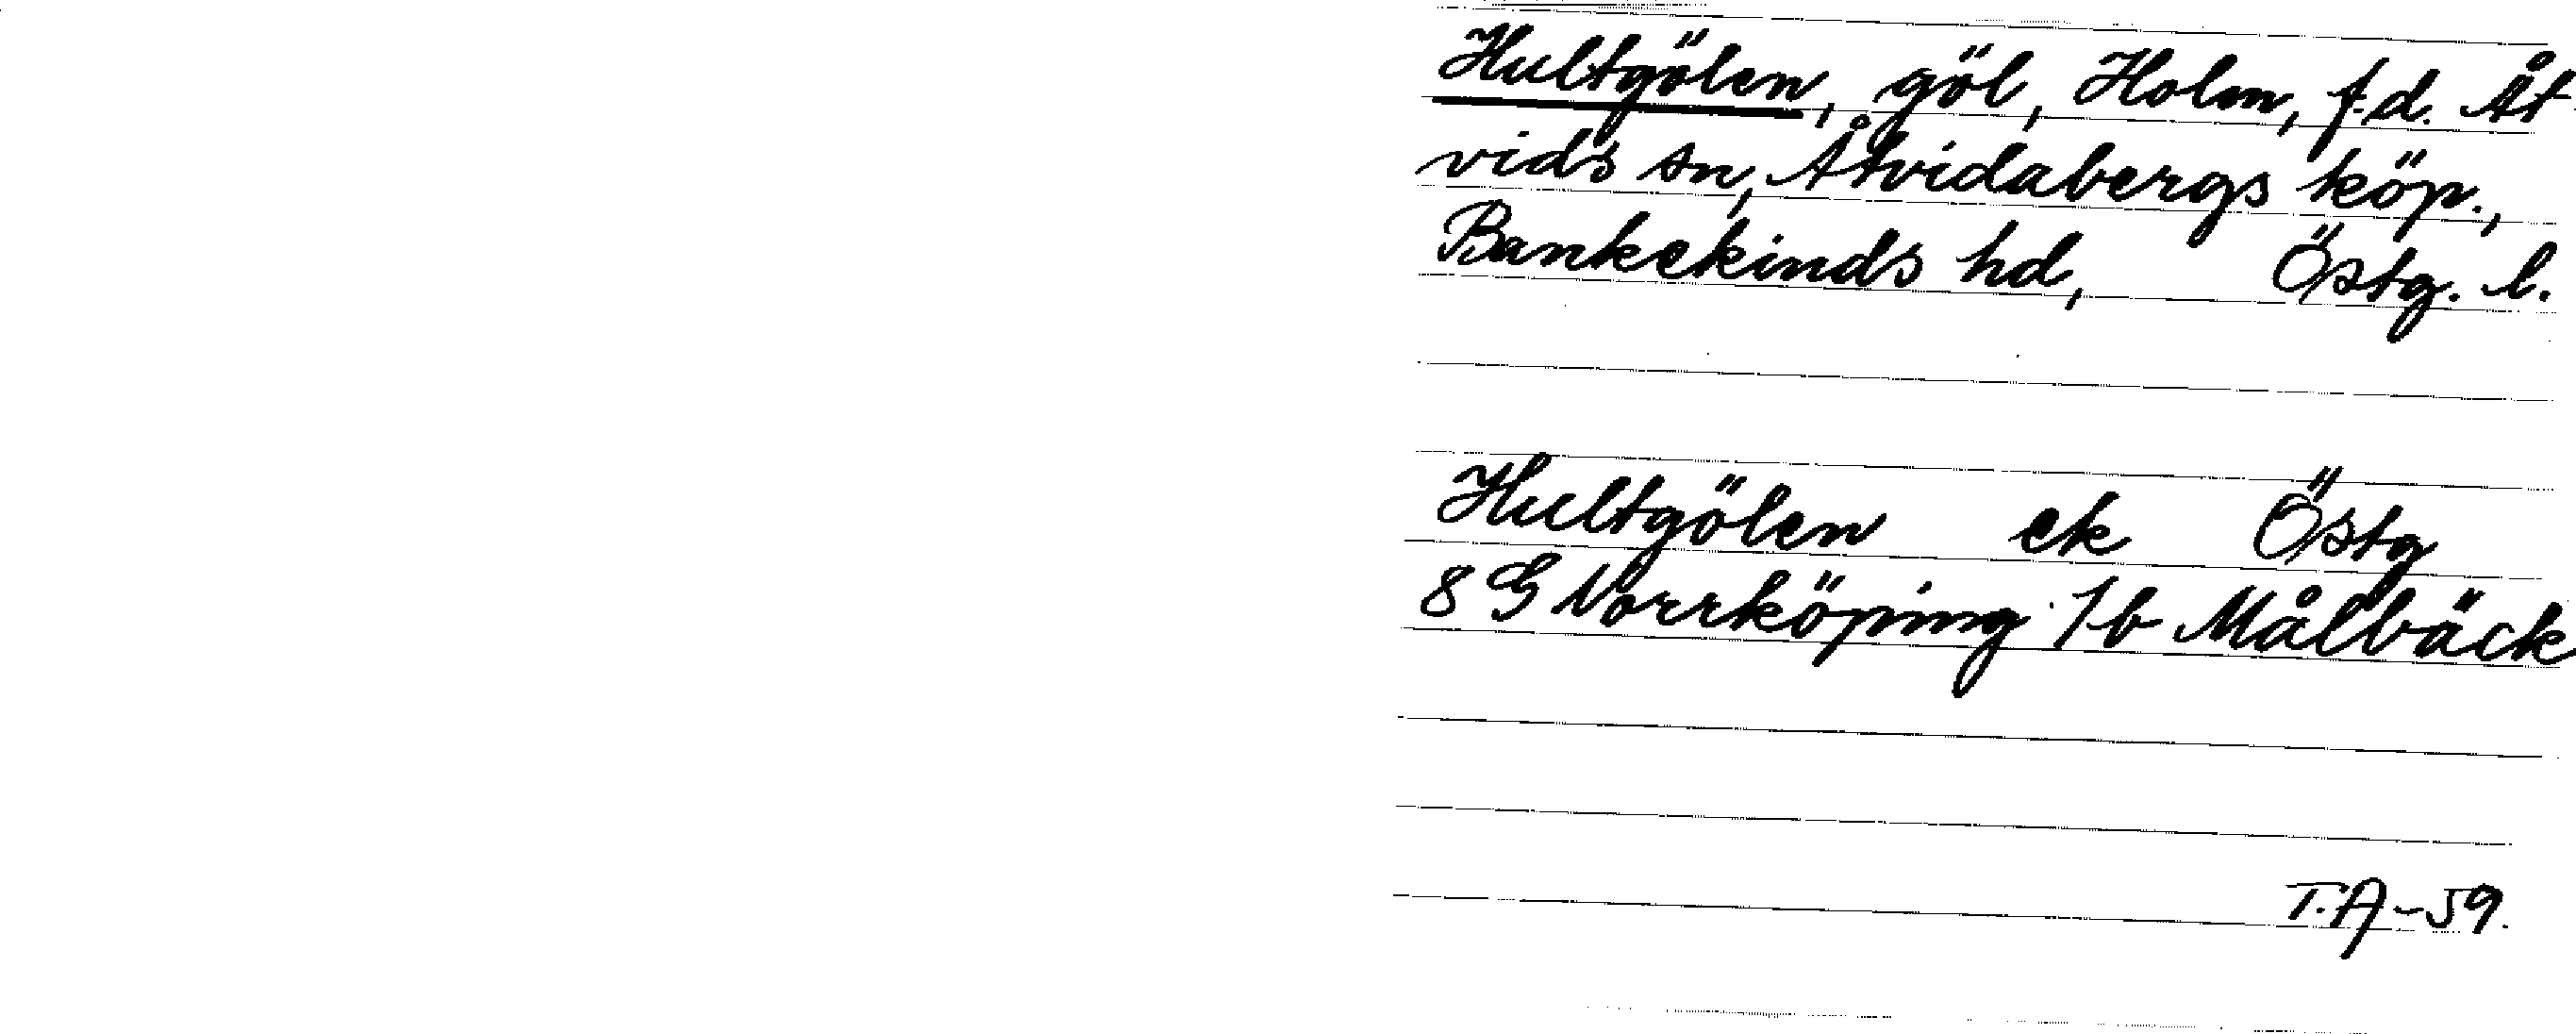 Hultgölen, göl, Holm, f.d. Åt-
vids sn, Åtvidabergs köp.,
Bankekinds hd, Östg. l.
Hultgölen ek Östg
8 G Norrköping 1b Målbäck
T.A-59.